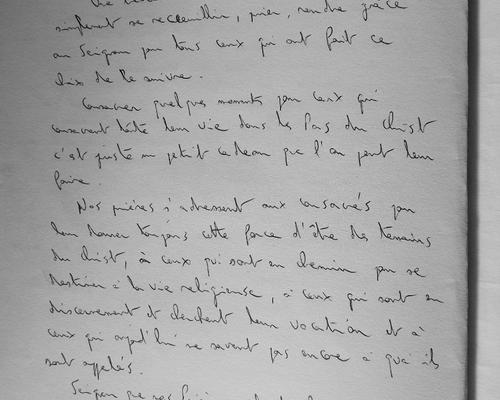 simplement se recueillir, prier, rendre grâce
au Seigneur pour tous ceux qui ont fait ce
choix de le suivre.
Consacrer quelques moments pour ceux qui
consacrent toute leur vie dans les Pas du Christ
c'est juste un petit cadeau que l'on peut leur
faire.
Nos prières s'adressent aux consacrés pour
leur donner toujours cette force d'être des témoins
du Christ, à ceux qui sont en chemin pour se
destiner à la vie religieuse, à ceux qui sont en
discernement et cherchent leur vocation et à
ceux qui aujourd'hui ne savent pas encore à quoi ils
sont appelés.
Seigneur que nos